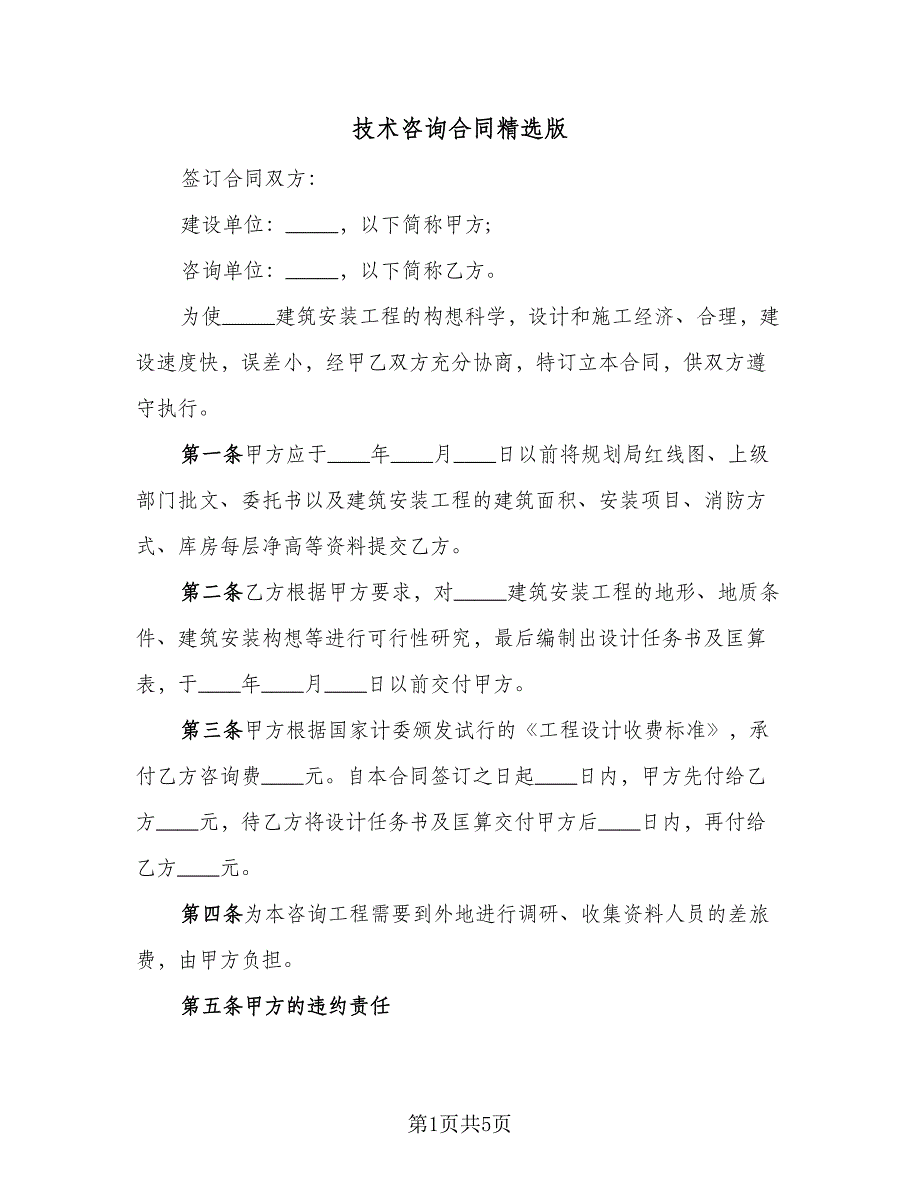 技术咨询合同精选版
签订合同双方：
建设单位：_____，以下简称甲方;
咨询单位：_____，以下简称乙方。
为使_____建筑安装工程的构想科学，设计和施工经济、合理，建
设速度快，误差小，经甲乙双方充分协商，特订立本合同，供双方遵
守执行。
第一条甲方应于____年____月____日以前将规划局红线图、上级
部门批文、委托书以及建筑安装工程的建筑面积、安装项目、消防方
式、库房每层净高等资料提交乙方。
第二条乙方根据甲方要求，对_____建筑安装工程的地形、地质条
件、建筑安装构想等进行可行性研究，最后编制出设计任务书及匡算
表，于____年____月____日以前交付甲方。
第三条甲方根据国家计委颁发试行的《工程设计收费标准》，承
付乙方咨询费____元。自本合同签订之日起____日内，甲方先付给乙
方____元，待乙方将设计任务书及匡算交付甲方后____日内，再付给
乙方____元。
第四条为本咨询工程需要到外地进行调研、收集资料人员的差旅
费，由甲方负担。
第五条甲方的违约责任
第1页共5页